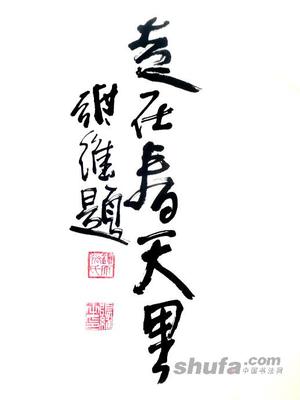 走在春天里
維題
shufa.com
中国书法网